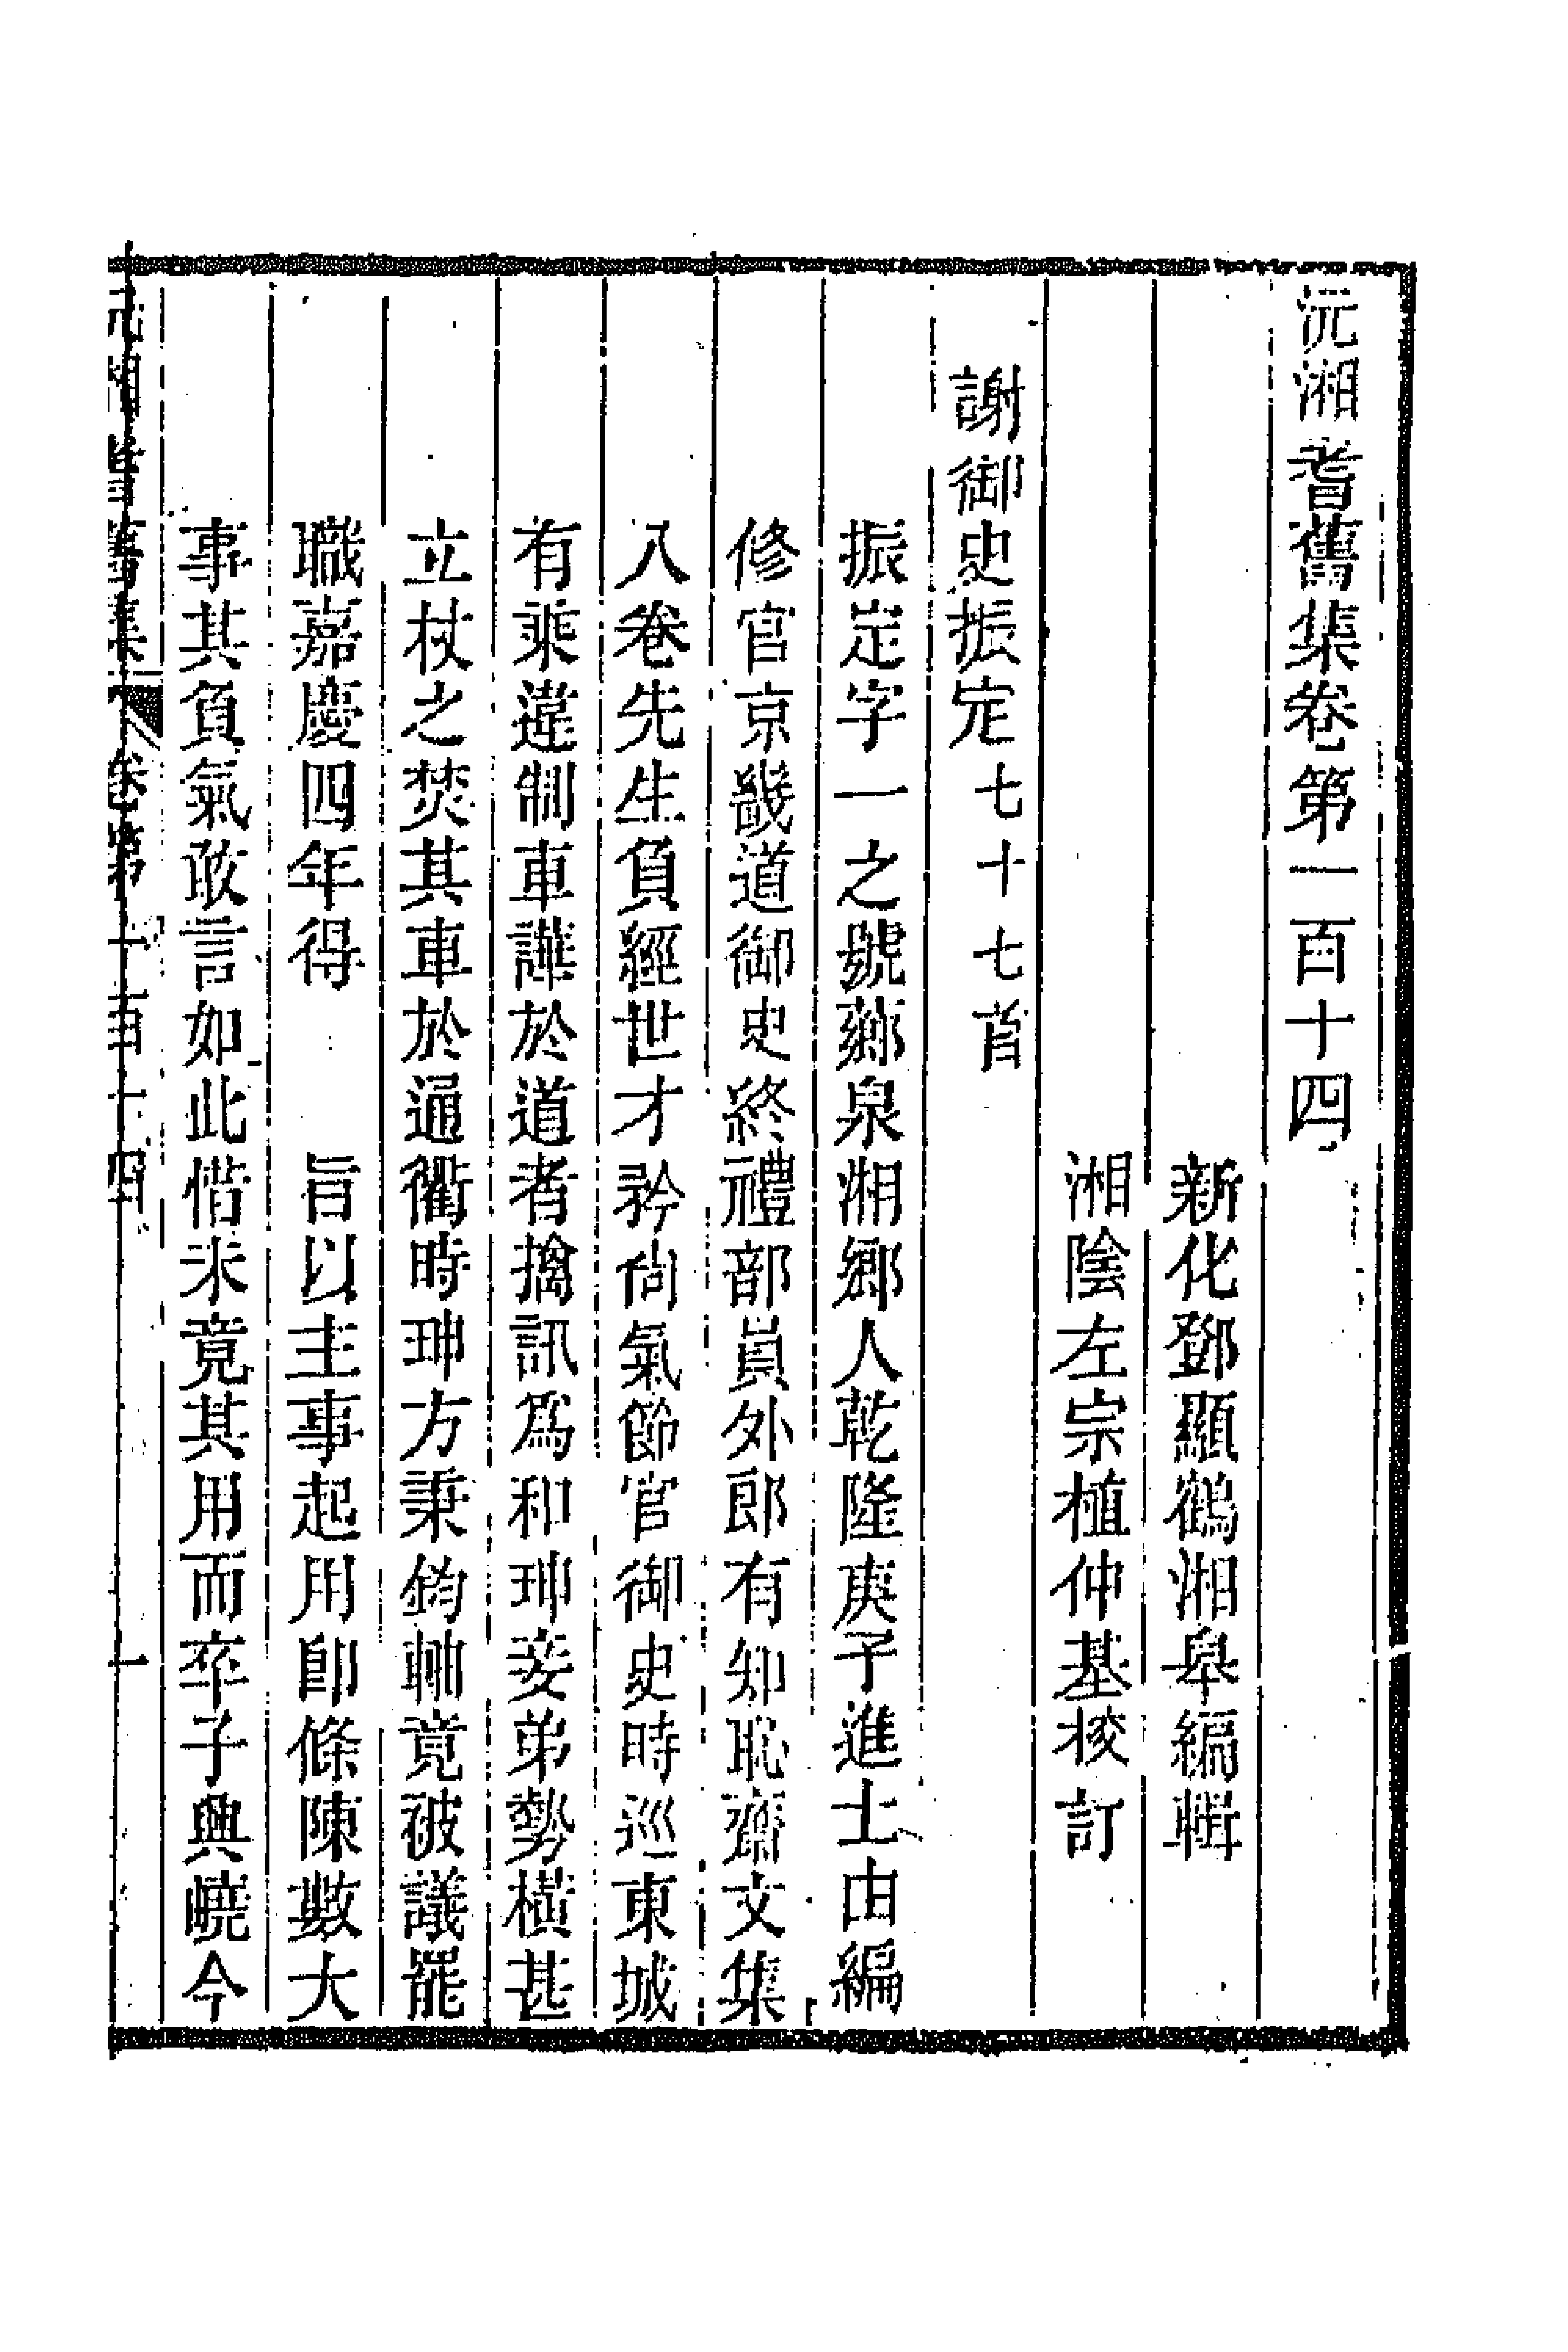 沅湘耆舊集卷第一百十四
新化鄧顯鶴湘皋編輯
湘陰左宗植仲基校訂
謝御史振定七十七首
振定字一之號薌泉湘鄉人乾隆庚子進士由編
修官京畿道御史終禮部員外郎有知恥齋文集
八卷先生負經世才矜尚氣節官御史時巡東城
有乘違制車譁於道者擒訊爲和珅妾弟勢橫甚
立杖之焚其車於通衢時珅方秉鈞軸竟被議罷
職嘉慶四年得 旨以主事起用卽條陳數大
事其負氣敢言如此惜未竟其用而卒子興嶢今
沅湘耆舊集 卷第一百十四 一